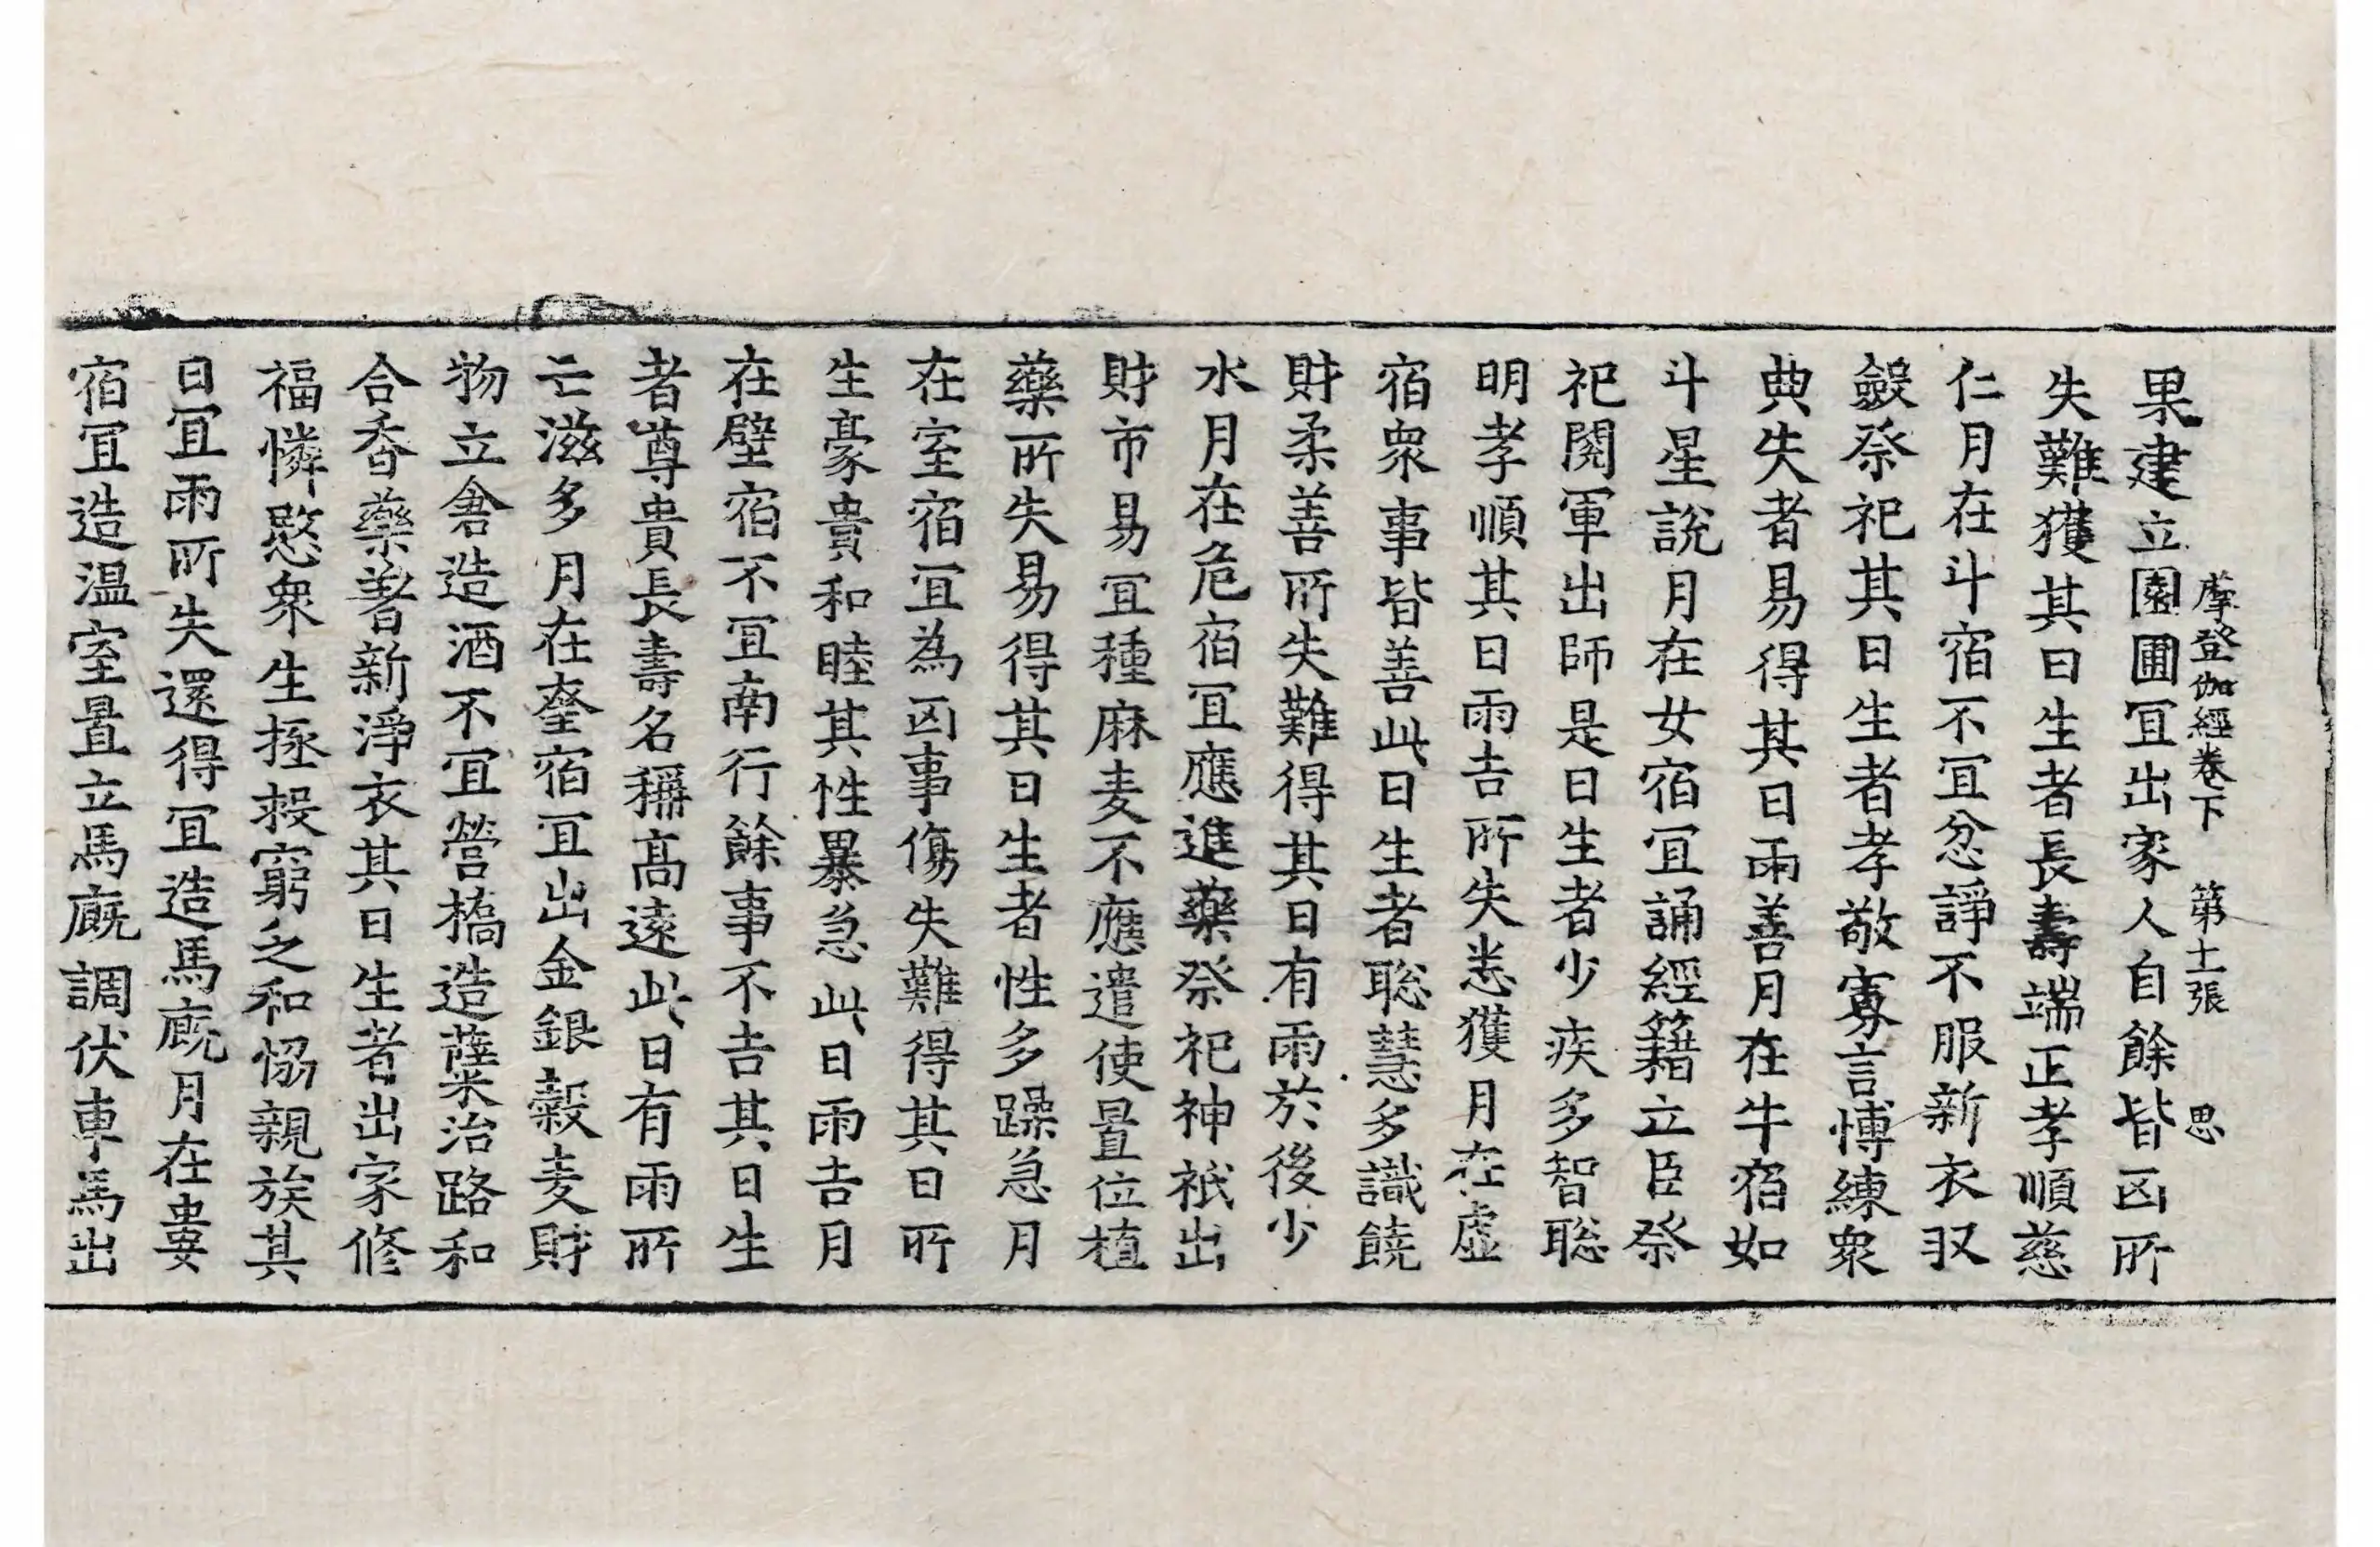 摩登伽經卷下　第十一張　思
果建立園圃冝出家人自餘皆凶所
失難獲其日生者長壽端正孝順慈
仁月在斗宿不冝忿諍不服新衣収
斂祭祀其日生者孝敬寡言慱練衆
典失者易得其日雨善月在牛宿如
斗星說月在女宿冝誦經籍立臣祭
祀閱軍出師是日生者少疾多智聡
明孝順其日雨吉所失悉獲月在虛
宿衆事皆善此日生者聡慧多識饒
財柔善所失難得其日有雨於後少
水月在危宿冝應進藥祭祀神祇出
財市易冝種麻麦不應遣使置位植
藥所失易得其日生者性多躁急月
在室宿冝為凶事傷失難得其日所
生豪貴和睦其性暴急此日雨吉月
在壁宿不冝南行餘事不吉其日生
者尊貴長壽名稱髙遠此日有雨所
亡滋多月在奎宿冝出金銀穀麦財
物立倉造酒不冝營橋造蘗治路和
合香藥著新淨衣其日生者出家修
福憐愍衆生拯救窮乏和恊親族其
日冝雨所失還得冝造馬廐月在婁
宿冝造温室置立馬廐調伏車馬出